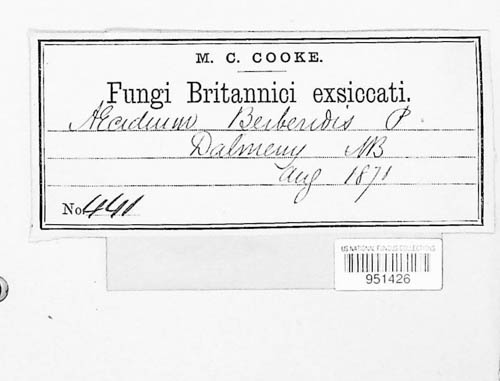 M. C. COOKE.
Fungi Britannici exsiccati.
Æcidium Berberidis P
Dalmeny NB
Aug 1871
No. 441
US NATIONAL FUNGUS COLLECTIONS
951426